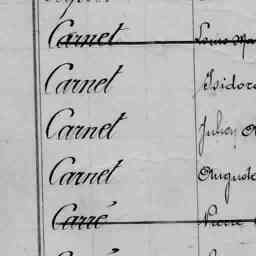 Carnet Louis Ma
Carnet Isidor
Carnet Julien
Carnet August
Carré Pierre